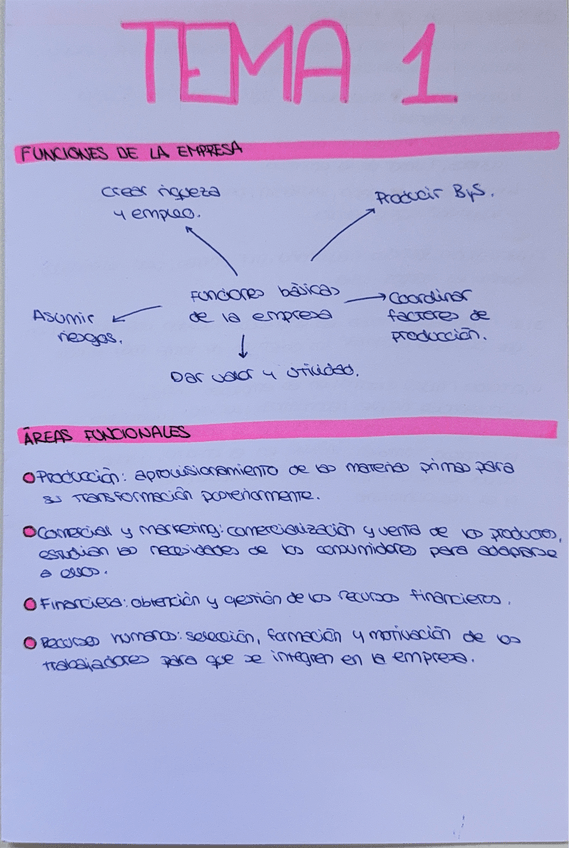 TEMA 1
FUNCIONES DE LA EMPRESA
Crear riqueza
y empleo.
Producir ByS.
Funciones básicas
de la empresa
Asumir
riesgos.
Coordinar
factores de
producción.
Dar valor y utilidad.
ÁREAS FUNCIONALES
Producción: aprovisionamiento de las materias primas para
su transformación posteriormente.
Comercial y marketing: comercialización y venta de los productos,
estudian las necesidades de los consumidores para adaptarse
a ellos.
Financiera: obtención y gestión de los recursos financieros.
Recursos humanos: selección, formación y motivación de los
trabajadores para que se integren en la empresa.